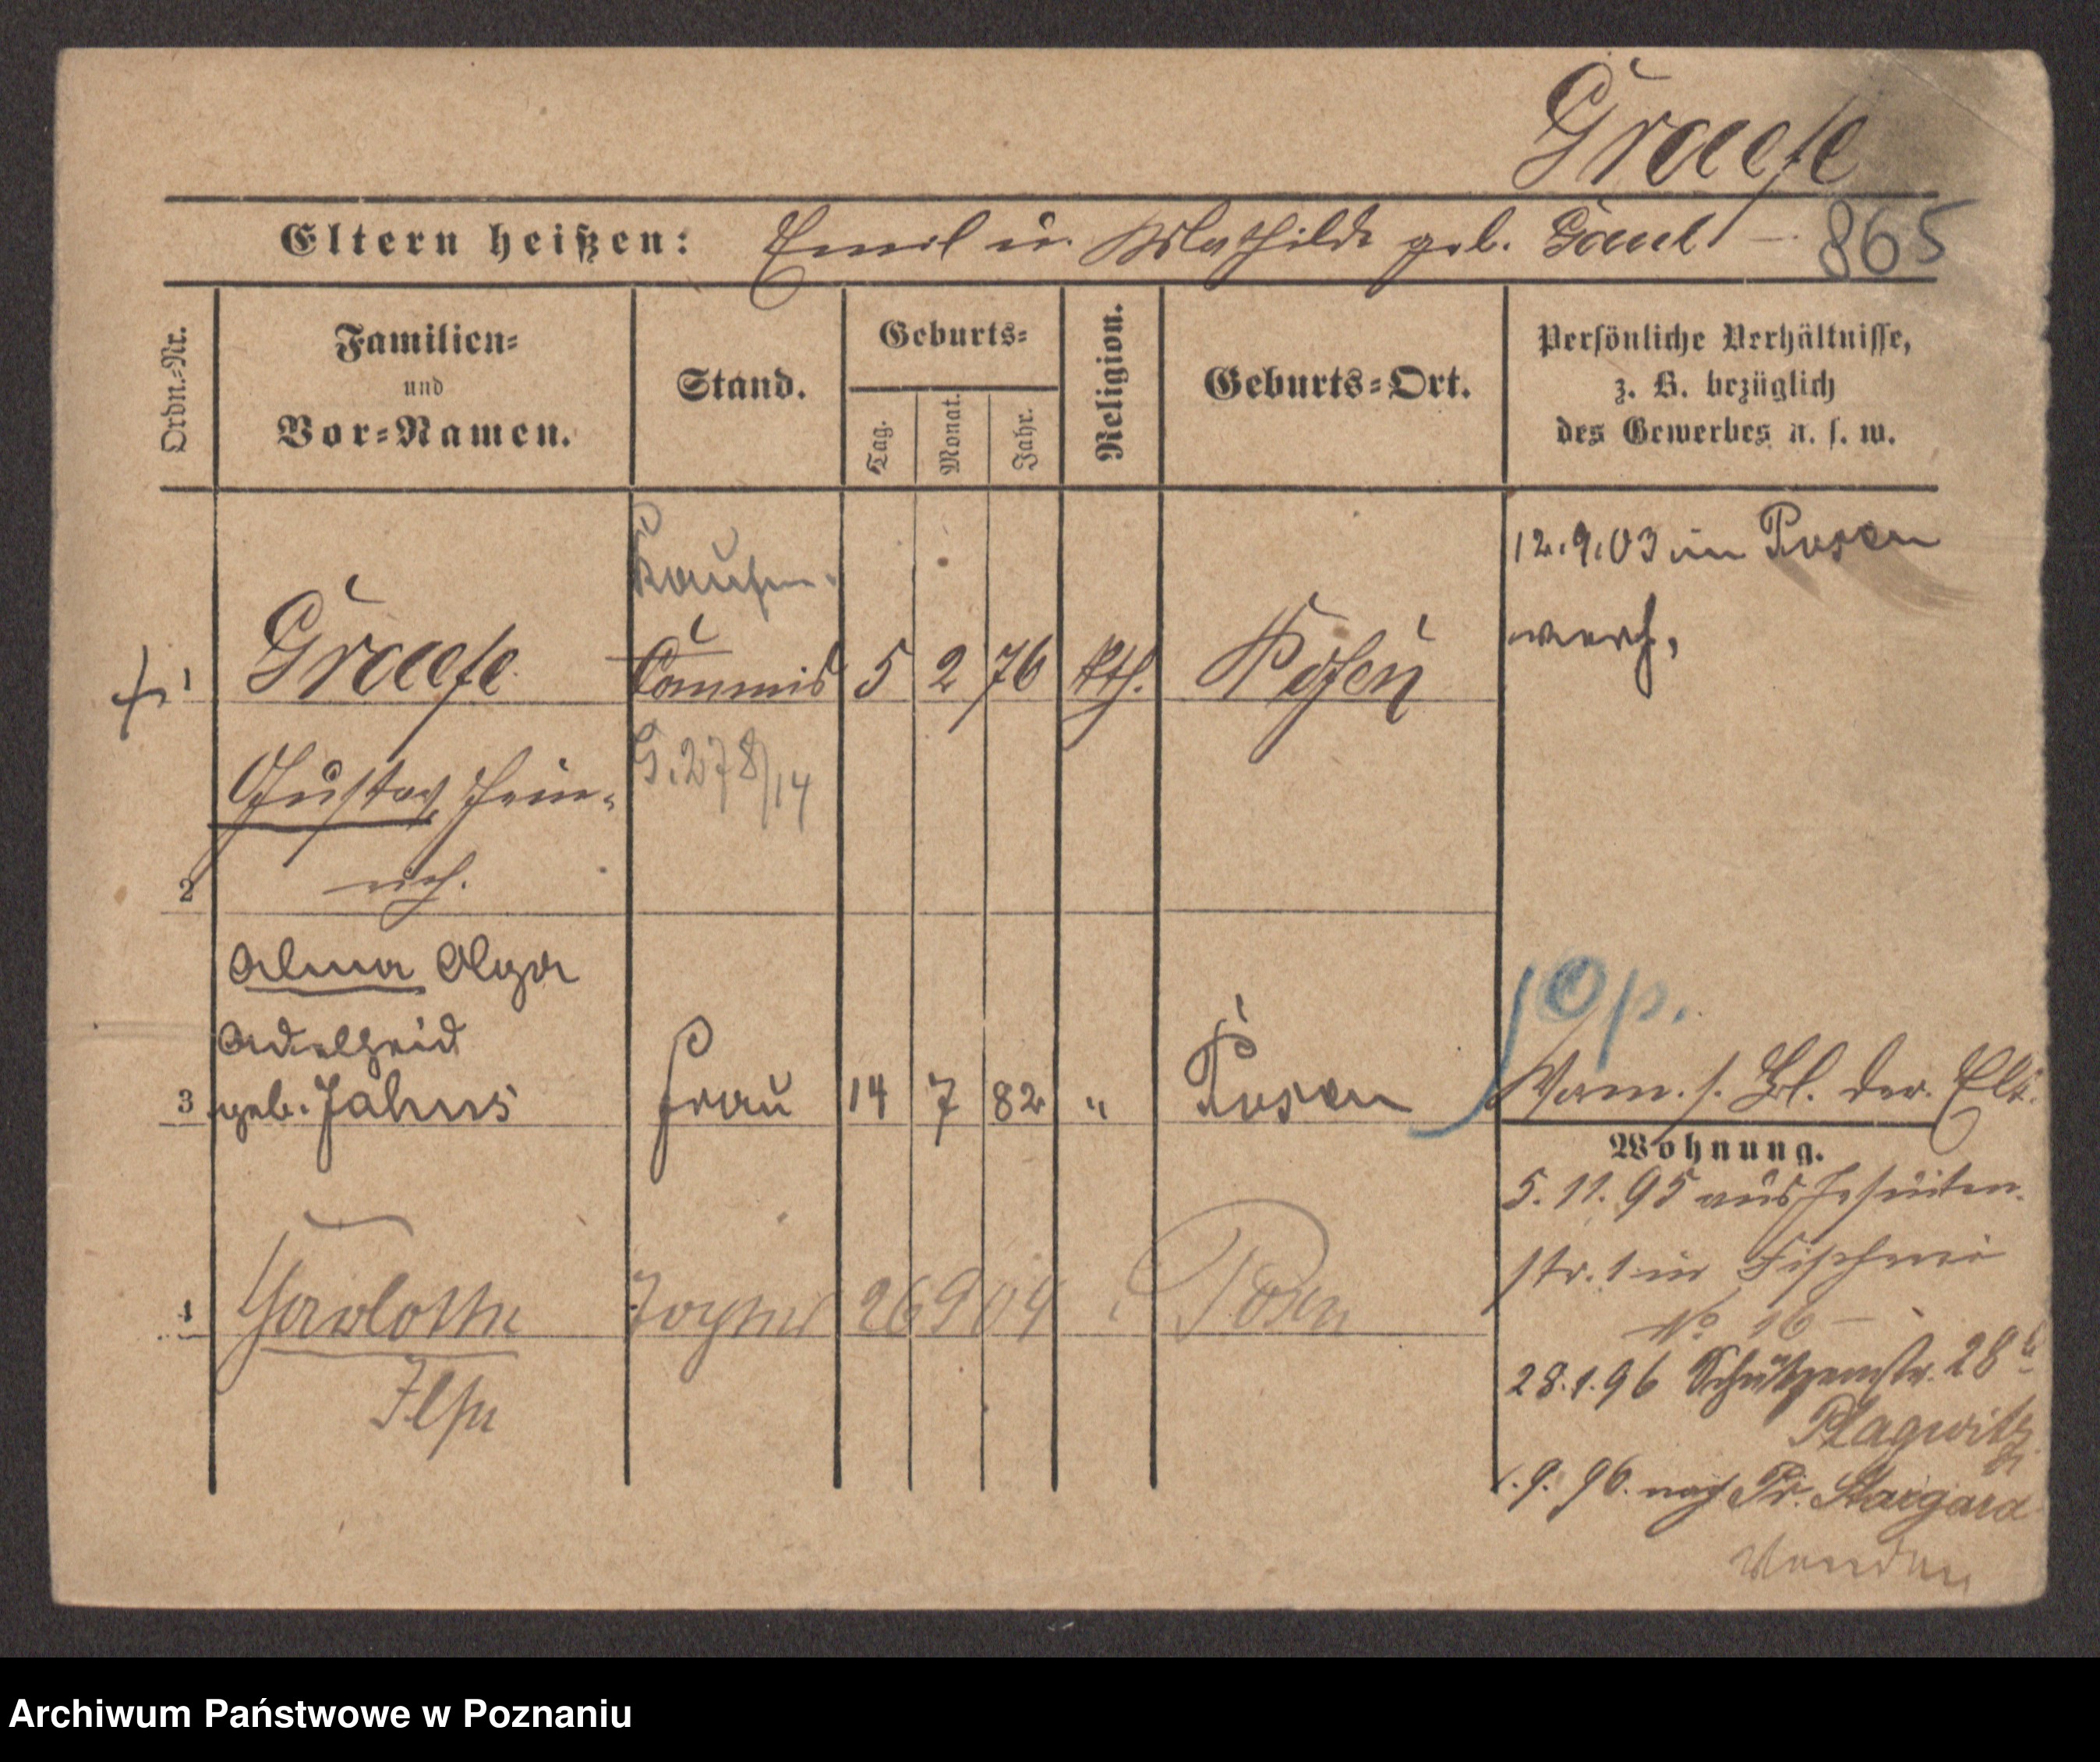 Graefe
Eltern heißen: Emil u. Mathilde geb.
865
Ordn.-Nr.
Familien-
und
Vor-Namen.
Stand.
Geburts-
Tag.
Monat.
Jahr.
Religion.
Geburts-Ort.
Persönliche Verhältnisse,
z. B. bezüglich
des Gewerbes u. s. w.
Kaufm.
1 Graefe Commis 5 2 76 Kth. Posen
12.9.03 in Posen
verh.
Gustav Hein-
G. 278/14
2 rich.
Alma Olga
Adelheid
3 geb. Jahns Frau 14 7 82 " Posen
Verm. s. Bl. der Elt.
Wohnung.
5.11.95 aus Jesuiten-
str. 1 in Fischerei
No 16 –
28.1.96 Schützenstr. 28
Plagwitz
9.96. nach Pr. Stargard
4 Tochter 26 9 04 Posen
Ilse
Archiwum Państwowe w Poznaniu